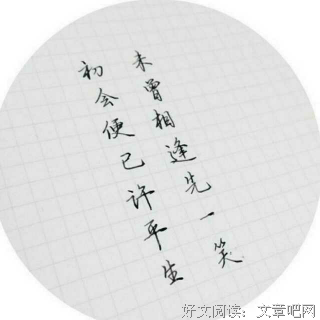 未曾相逢先一笑
初会便已许平生
好文阅读：文章吧网